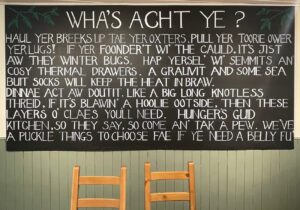 WHA'S ACHT YE?
HAUL YER BREEKS UP TAE YER OXTERS, PULL YER TOORIE OWER
YER LUGS! IF YER FOUNDER'T WI' THE CAULD, IT'S JIST
AW THEY WINTER BUGS. HAP YERSEL' WI' SEMMITS AN
COSY THERMAL DRAWERS. A GRAUVIT AND SOME SEA
BUIT SOCKS WILL KEEP THE HEAT IN BRAW.
DINNAE ACT AW DOUTIT. LIKE A BIG LONG KNOTLESS
THREID, IF IT'S BLAWIN' A HOOLIE OOTSIDE, THEN THESE
LAYERS O' CLAES YOU'LL NEED. HUNGERS GUID
KITCHEN, SO THEY SAY, SO COME AN' TAK A PEW. WE'VE
A PUCKLE THINGS TO CHOOSE FAE IF YE NEED A BELLY FU